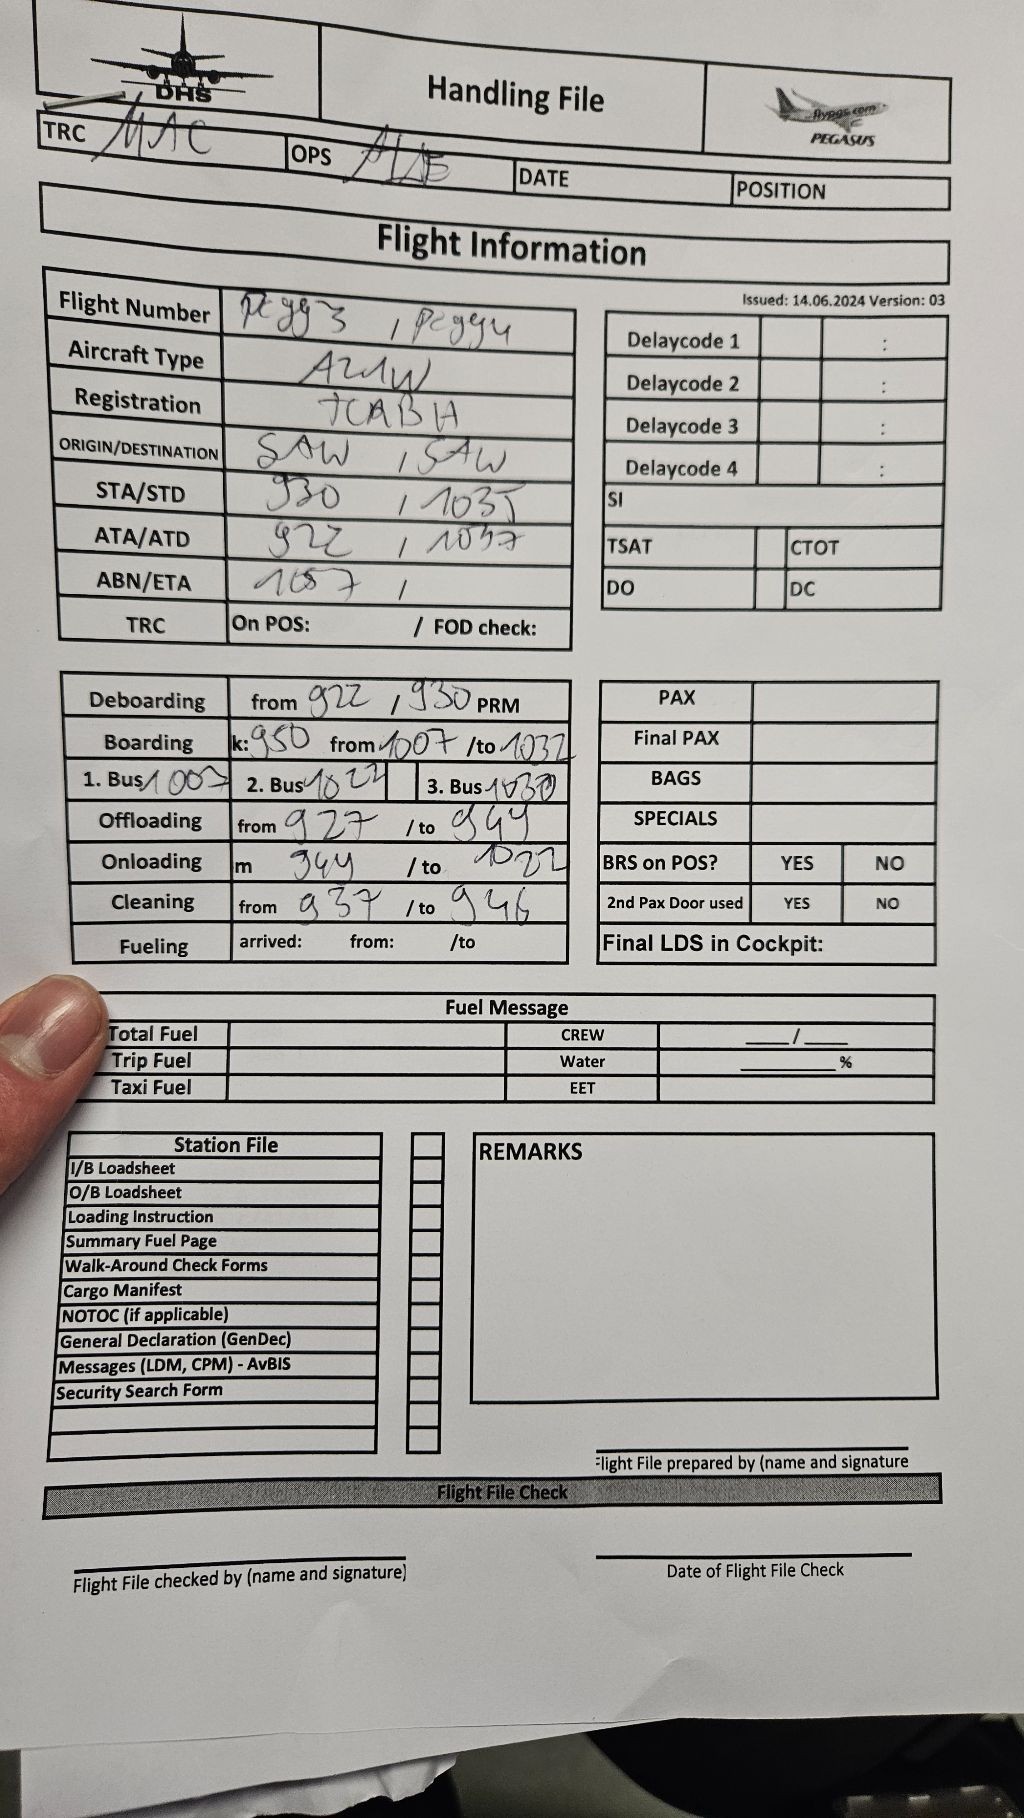 DHS
Handling File
flypgs.com
PEGASUS
TRC MAC
OPS
DATE
POSITION
Flight Information
Issued: 14.06.2024 Version: 03
Flight Number PC993 / PC994
Aircraft Type A21W
Registration TCRBH
ORIGIN/DESTINATION SAW / SAW
STA/STD 930 / 1035
ATA/ATD 922 / 1037
ABN/ETA 1057 /
TRC On POS: / FOD check:
Delaycode 1 :
Delaycode 2 :
Delaycode 3 :
Delaycode 4 :
SI
TSAT CTOT
DO DC
Deboarding from 922 / 930 PRM
Boarding k: 950 from 1007 /to 1032
1. Bus 1007 2. Bus 1022 3. Bus 1030
Offloading from 927 / to 944
Onloading m 944 / to 1022
Cleaning from 937 / to 946
Fueling arrived: from: /to
PAX
Final PAX
BAGS
SPECIALS
BRS on POS? YES NO
2nd Pax Door used YES NO
Final LDS in Cockpit:
Fuel Message
Total Fuel CREW ___/___
Trip Fuel Water ________%
Taxi Fuel EET
Station File
I/B Loadsheet
O/B Loadsheet
Loading Instruction
Summary Fuel Page
Walk-Around Check Forms
Cargo Manifest
NOTOC (if applicable)
General Declaration (GenDec)
Messages (LDM, CPM) - AvBIS
Security Search Form
REMARKS
Flight File prepared by (name and signature
Flight File Check
Flight File checked by (name and signature)
Date of Flight File Check